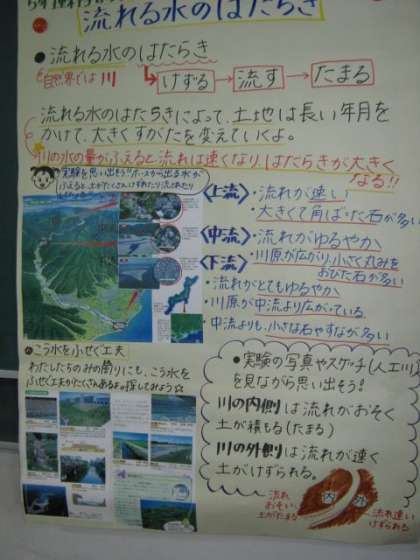 流れる水のはたらき
●流れる水のはたらき
自然界では川
けずる→流す→たまる
流れる水のはたらきによって、土地は長い年月を
かけて、大きくすがたを変えていくよ。
川の水の量がふえると流れは速くなり はたらきが大きく
なる!!
実験を思い出そう!ホースから出る水が
ふえると、土がたくさんけずれたり流されたり
〈上流〉・流れが速い
・大きくて角ばった石が多い
〈中流〉・流れがゆるやか
・川原が広がり、小さく丸みを
おびた石が多い
〈下流〉
・流れがとてもゆるやか
・川原が中流より広がっている
・中流よりも、小さな石やすなが多い
こう水をふせぐ工夫
わたしたちのみの周りにも、こう水を
ふせぐ工夫がたくさんあるよ♪探してみよう☆
●実験の写真やスケッチ(人工川)
を見ながら思い出そう!
川の内側は流れがおそく
土が積もる(たまる)
川の外側は流れが速く
土がけずられる。
内
外
流れ
おそい
土がたまる
流れ速い
けずられる